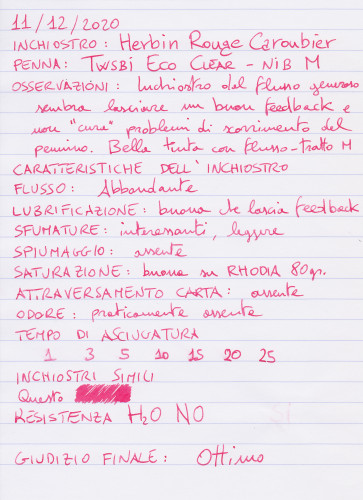 11/12/2020
INCHIOSTRO: Herbin Rouge Caroubier
PENNA: TWSBI ECO CLEAR - NIB M
OSSERVAZIONI: Inchiostro dal flusso generoso
sembra lasciare un buon feedback e
non "cura" problemi di scorrimento del
pennino. Bella tinta con flusso-tratto M
CARATTERISTICHE DELL'INCHIOSTRO
FLUSSO: Abbondante
LUBRIFICAZIONE: buona che lascia feedback
SFUMATURE: interessanti, leggere
SPIUMAGGIO: assente
SATURAZIONE: buona su RHODIA 80gr.
ATTRAVERSAMENTO CARTA: assente
ODORE: praticamente assente
TEMPO DI ASCIUGATURA
1 3 5 10 15 20 25
INCHIOSTRI SIMILI
Questo
RESISTENZA H2O NO
GIUDIZIO FINALE: Ottimo